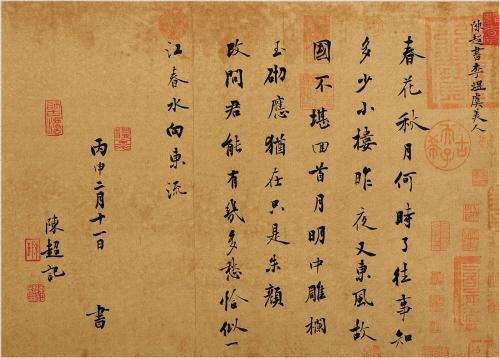 陳超書李煜虞美人
春花秋月何時了往事知
多少小樓昨夜又東風故
國不堪回首月明中雕欄
玉砌應猶在只是朱顏
改問君能有幾多愁恰似一
江春水向東流
丙申二月十一日 書
陳超記